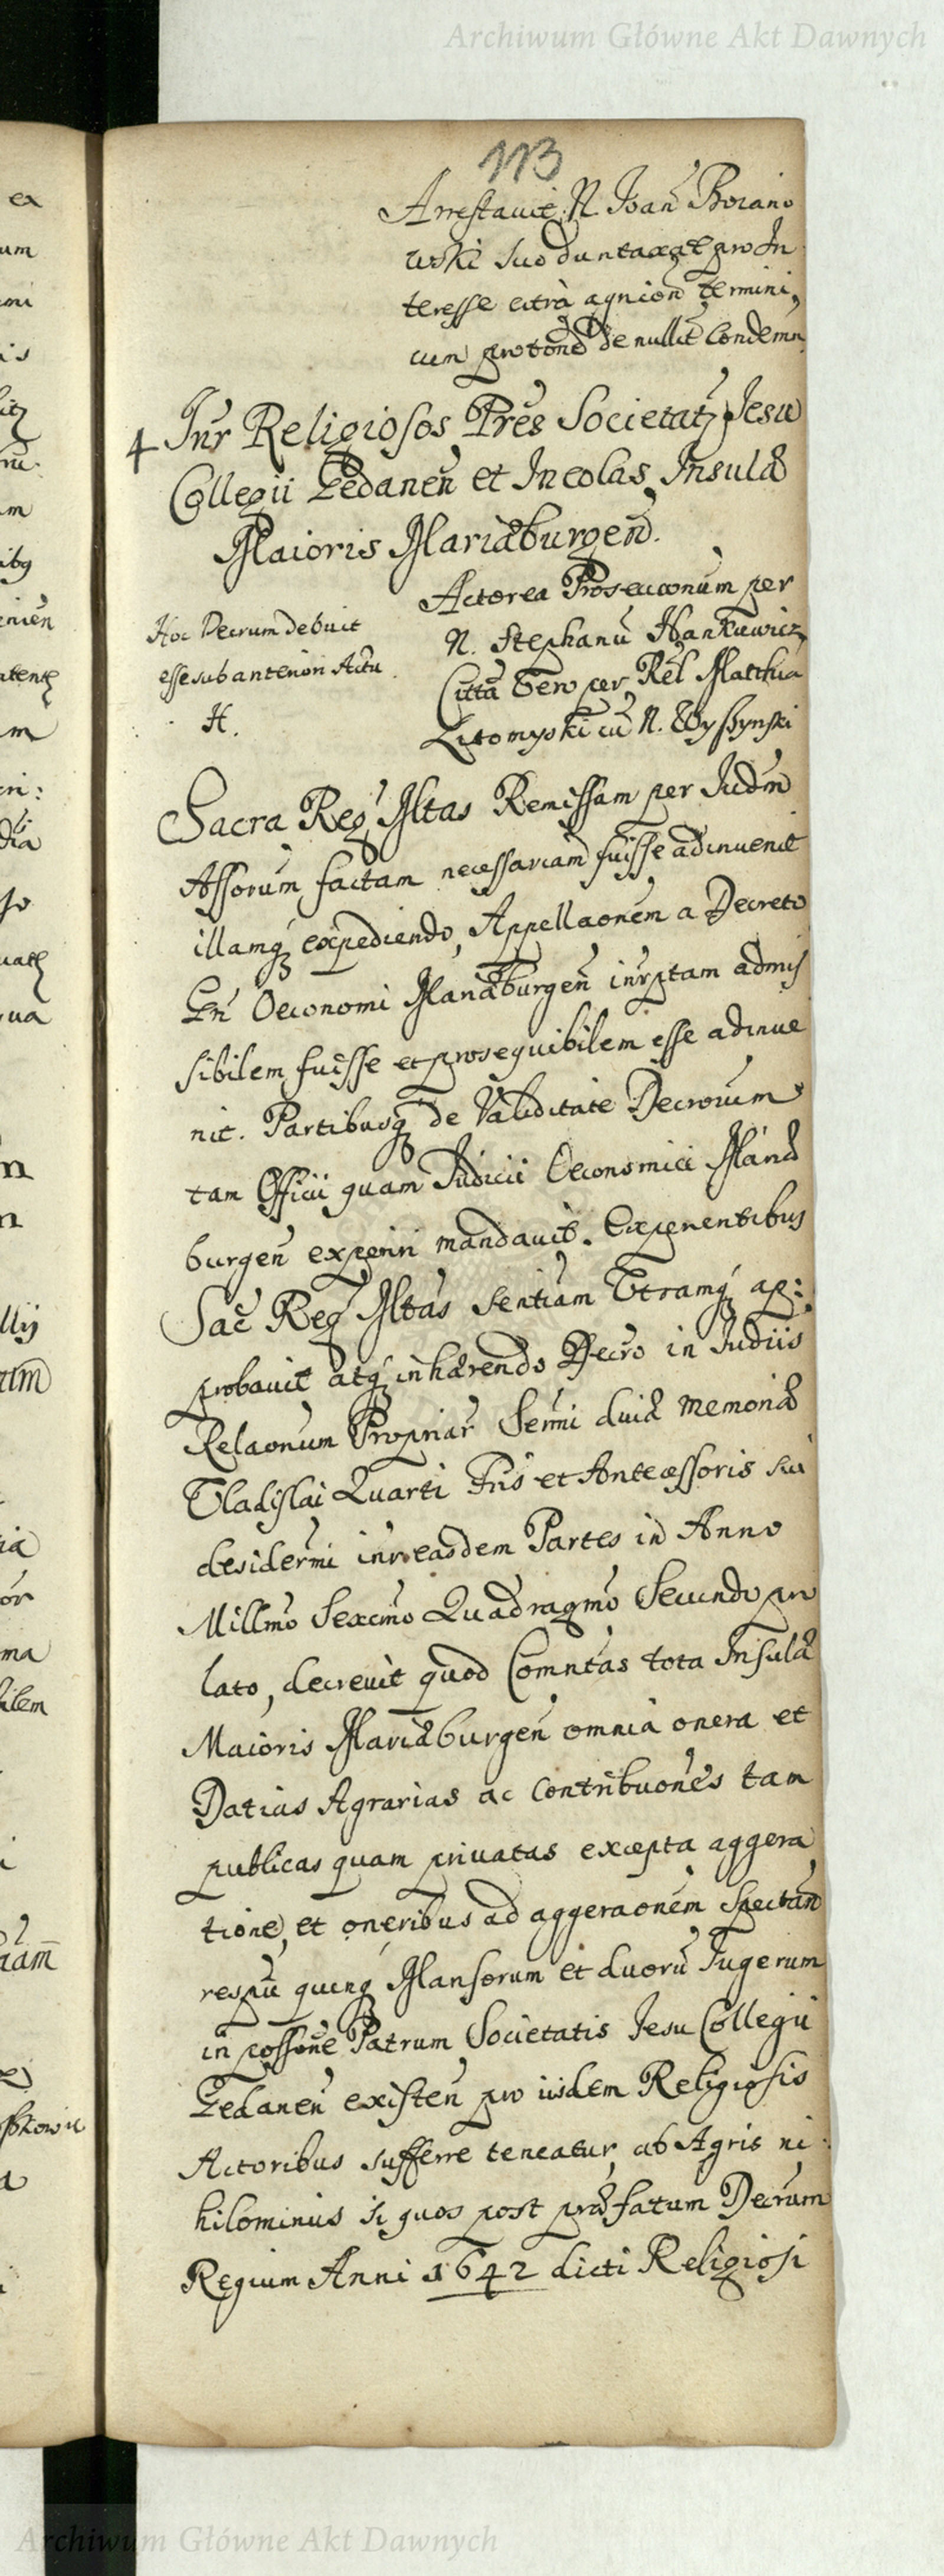 Archiwum Główne Akt Dawnych
113
Arrestavit N. Joañ Boiano
wski suo duntaxat pro In
teresse citrà agnion termini,
cum protone de nullit Condemn
4 Inr Religiosos Prēs Societatz Jesu
Collegii Gedanen̄ et Incolas Insulæ
Maioris Mariæburgen̄.
Actorea Prosecuonum per
N. Stephanū Hankiewicz
Citta Vero per Rel Matthia
Litomyski cū N. Wyszynski
Hoc Decrum debuit
esse sub anteriori Actu
H.
Sacra Reg Mtas Remissam per Judm
Assorum factam necessariam fuisse adinvenit
illamq expediendo, Appellaonem a Decreto
Gn̄ Oeconomi Mariæburgen̄ inrptam admis
sibilem fuisse et prosequibilem esse adinve
nit. Partibusq de Validitate Decrorum
tam Officii quam Judicii Oeconomici Mariæ
burgen̄ experiri mandavit. Experientibus
Sac̄ Reg Mtas Sentiam Utramq ap:
probavit atq inhærendo Decro in Judiis
Relaonum Propriar Sermi divæ memoriæ
Vladislai Quarti Fris et Antecessoris sui
desidermi inr easdem Partes in Anno
Millmo Sexcmo Quadragmo Secundo pro
lato, decrevit quod Comntas tota Insulæ
Maioris Mariæburgen̄ omnia onera et
Datias Agrarias ac Contribuones tam
publicas quam privatas excepta aggera
tione, et oneribus ad aggeraonem Spectan̄
respu quinq Mansorum et duorū Jugerum
in possone Patrum Societatis Jesu Collegii
Gedanen̄ existen̄ pro iisdem Religiosis
Actoribus sufferre teneatur, ab Agris ni
hilominus si quos post præfatum Decrum
Regium Anni 1642 dicti Religiosi
Archiwum Główne Akt Dawnych